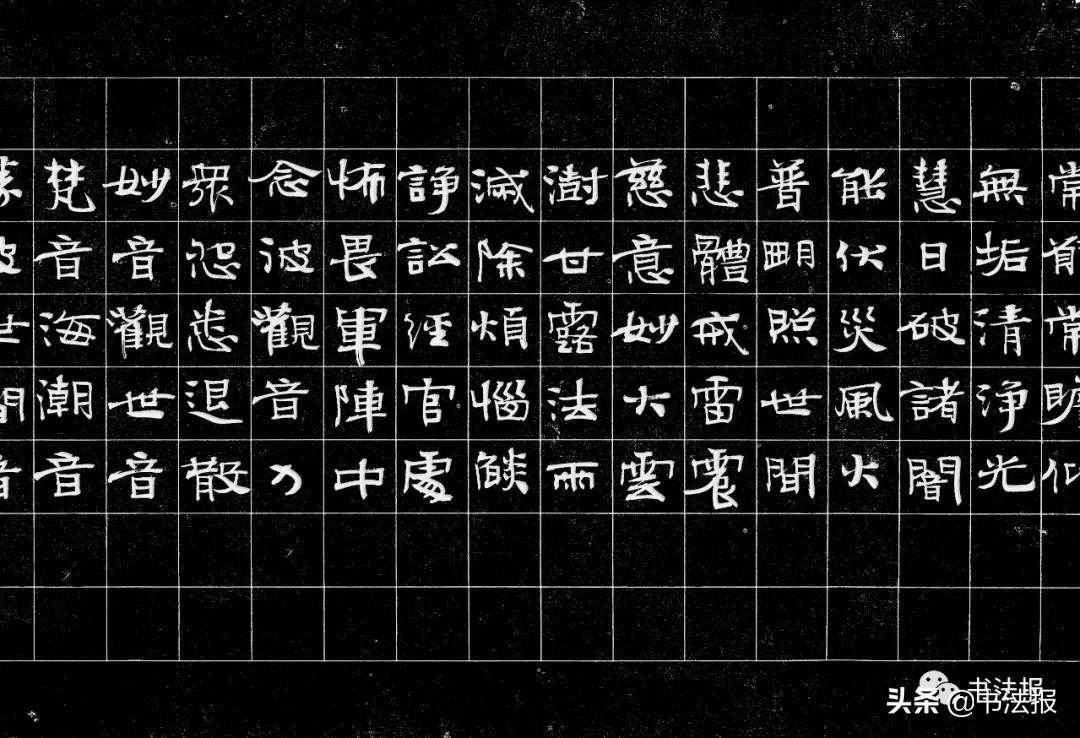 常願常瞻仰
無垢清浄光
慧日破諸闇
能伏災風火
普明照世間
悲體戒雷震
慈意妙大雲
澍甘露法雨
滅除煩惱燄
諍訟經官處
怖畏軍陣中
念彼觀音力
眾怨悉退散
妙音觀世音
梵音海潮音
彼世間音
书法报
头条@书法报